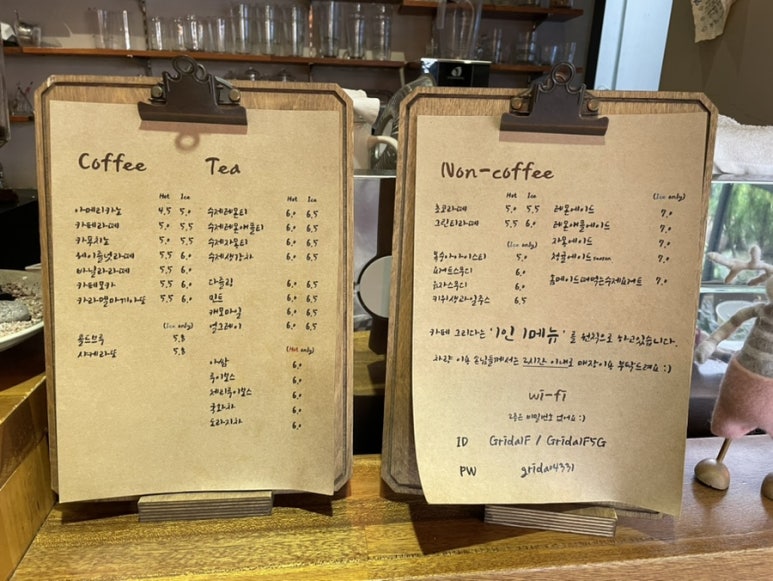 Coffee
Hot Ice
아메리카노 4.5 5.0
카페라떼 5.0 5.5
카푸치노 5.0 5.5
헤이즐넛라떼 5.5 6.0
바닐라라떼 5.5 6.0
카페모카 5.5 6.0
카라멜마끼아또 5.5 6.0
(Ice only)
콜드브루 5.8
샤케라또 5.8
Tea
Hot Ice
수제레몬티 6.0 6.5
수제레몬애플티 6.0 6.5
수제자몽티 6.0 6.5
수제생강차 6.0 6.5
다즐링 6.0 6.5
민트 6.0 6.5
캐모마일 6.0 6.5
얼그레이 6.0 6.5
(Hot only)
아쌈 6.0
루이보스 6.0
체리루이보스 6.0
국화차 6.0
도라지차 6.0
Non-coffee
Hot Ice
초코라떼 5.0 5.5
그린티라떼 5.5 6.0
(Ice only)
복숭아아이스티 5.0
요거트스무디 6.0
스무디 6.0
키위생과일주스 6.5
(Ice only)
레몬에이드 7.0
레몬애플에이드 7.0
자몽에이드 7.0
청귤에이드 season 7.0
홈메이드떠먹는수제요거트 7.0
카페 그리다는 '1인 1메뉴' 를 원칙으로 하고있습니다.
차량 이용 손님들께서는 2시간 이내로 매장이용 부탁드려요 :)
wi-fi
2층은 비밀번호 없어요 :)
ID Grida1F / Grida1F5G
PW grida4331